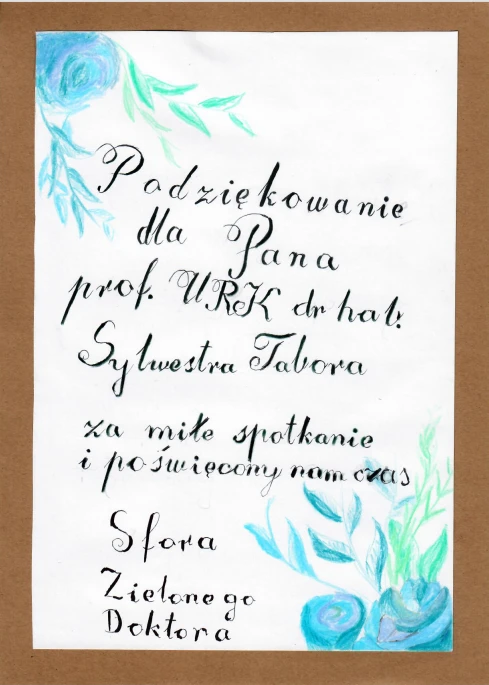 Podziękowanie
dla Pana
prof. URK dr hab.
Sylwestra Tabora
za miłe spotkanie
i poświęcony nam czas
Sfora
Zielonego
Doktora